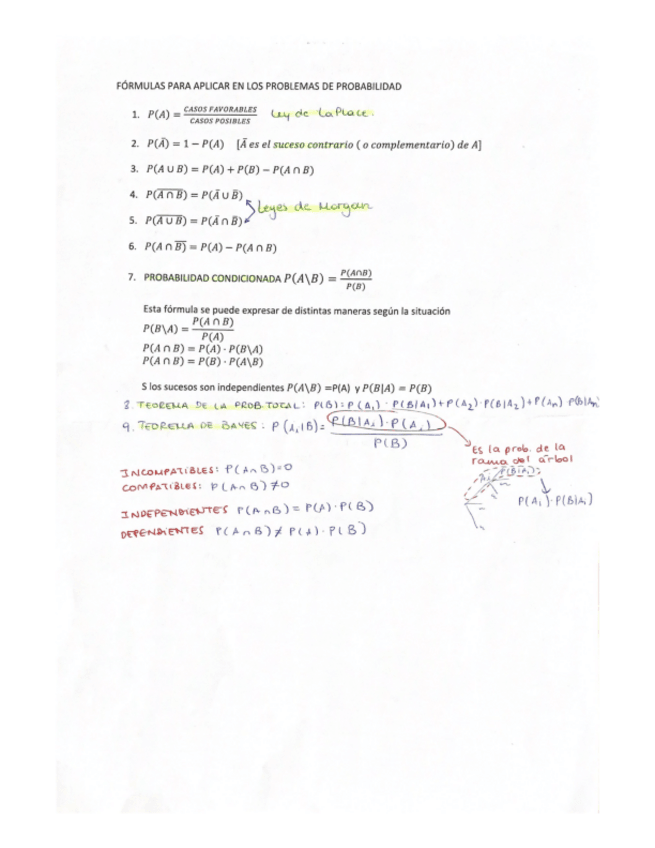 FÓRMULAS PARA APLICAR EN LOS PROBLEMAS DE PROBABILIDAD
1. P(A) = CASOS FAVORABLES / CASOS POSIBLES Ley de LaPlace.
2. P(Ā) = 1 − P(A) [Ā es el suceso contrario ( o complementario) de A]
3. P(A ∪ B) = P(A) + P(B) − P(A ∩ B)
4. P(A̅ ̅∩̅ ̅B̅) = P(Ā ∪ B̄)
Leyes de Morgan
5. P(A̅ ̅∪̅ ̅B̅) = P(Ā ∩ B̄)
6. P(A ∩ B̅)̅ = P(A) − P(A ∩ B)
7. PROBABILIDAD CONDICIONADA P(A\B) = P(A∩B) / P(B)
Esta fórmula se puede expresar de distintas maneras según la situación
P(B\A) = P(A ∩ B) / P(A)
P(A ∩ B) = P(A) · P(B\A)
P(A ∩ B) = P(B) · P(A\B)
S los sucesos son independientes P(A\B) =P(A) y P(B|A) = P(B)
8. TEOREMA DE LA PROB.TOTAL: P(B)=P(A₁) · P(B|A₁)+P(A₂)·P(B|A₂)+P(Aₙ)·P(B|Aₙ)
9. TEOREMA DE BAYES: P(Aᵢ|B)= P(B|Aᵢ)·P(Aᵢ) / P(B)
Es la prob. de la
rama del árbol
INCOMPATIBLES: P(A∩B)=0
COMPATIBLES: P(A∩B) ≠0
P(B|A₁)
P(A₁)·P(B|A₁)
INDEPENDIENTES P(A∩B)= P(A)·P(B)
DEPENDIENTES P(A∩B)≠ P(A)·P(B)